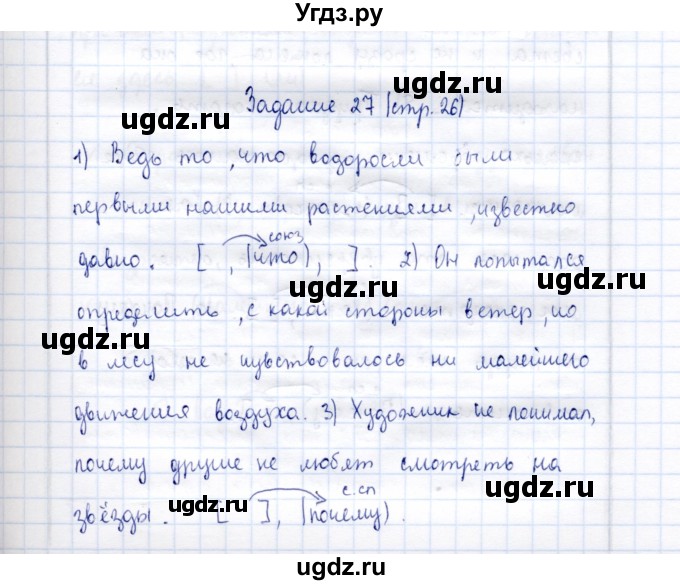 Угдз.ру
Задание 27 (стр. 26)
1) Ведь то, что водоросли были
первыми нашими растениями, известно
союз
давно. [ , (что), ]. 2) Он попытался
определить, с какой стороны ветер, но
в лесу не чувствовалось ни малейшего
движения воздуха. 3) Художник не понимал,
почему другие не любят смотреть на
с.сл
звёзды. [ ], (почему).
ugdz.ru
ugdz.ru
ugdz.ru
ugdz.ru
ugdz.ru
ugdz.ru
ugdz.ru
ugdz.ru
ugdz.ru
ugdz.ru